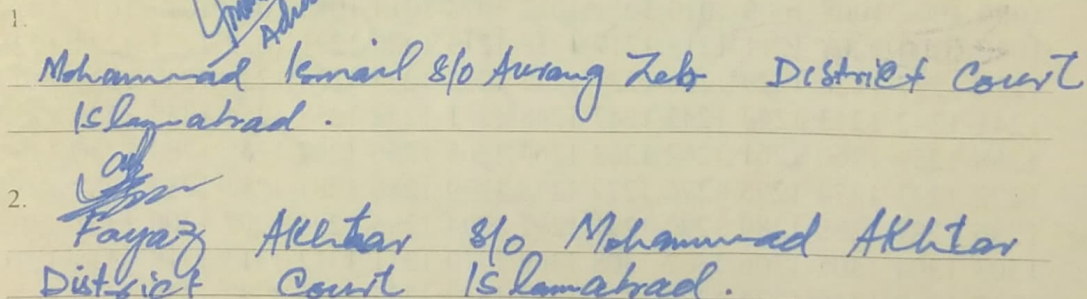 1.
Mohammad Ismail S/o Aurang Zeb District Court
Islamabad.
2.
Fayaz Akhtar S/o Mohammad Akhtar
District Court Islamabad.